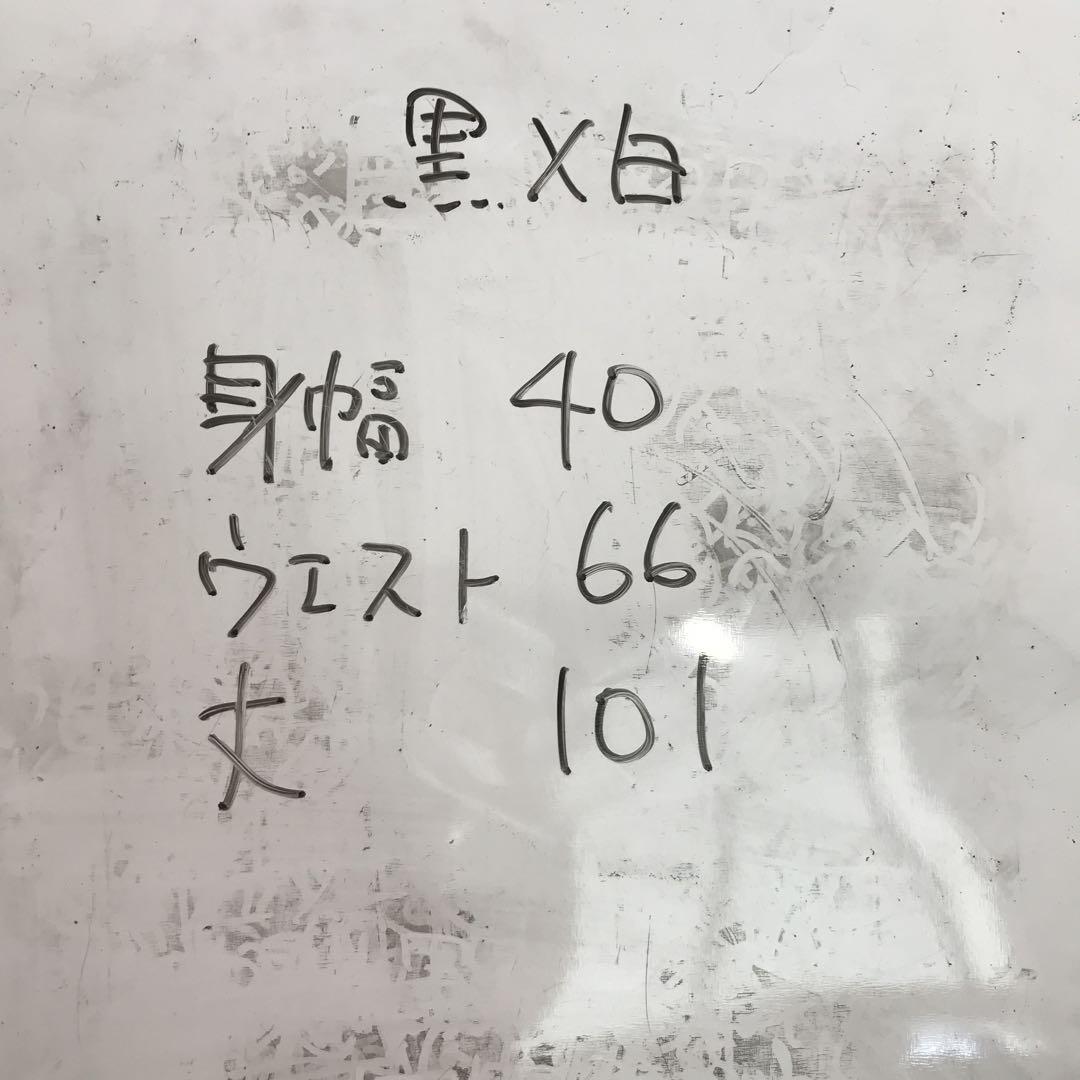 黒×白
身幅 40
ウエスト 66
丈 101